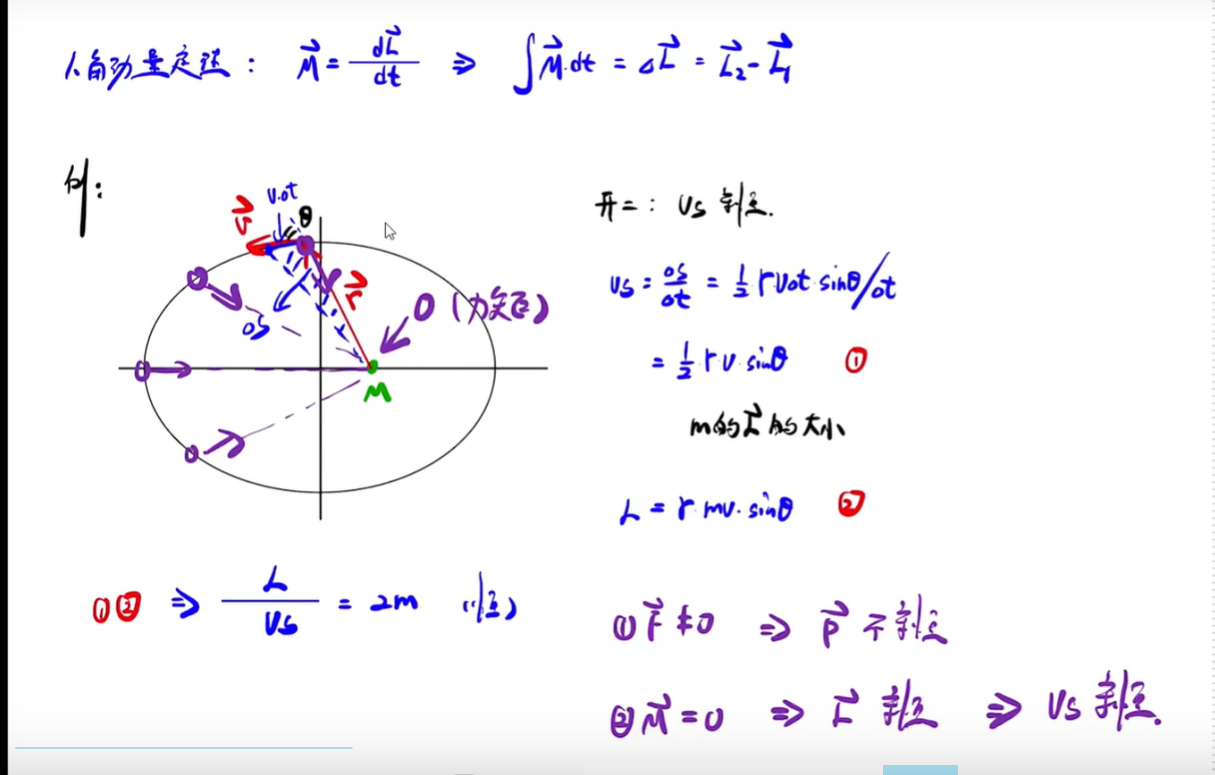 1. 角动量定理: M⃗ = dL⃗/dt ⇒ ∫M⃗·dt = ΔL⃗ = L⃗₂ - L⃗₁
例:
v⃗
v·Δt
θ
r⃗
ΔS
O (力矩臣)
M
开二: vs 守恒.
vs = ΔS/Δt = 1/2 r v Δt · sinθ/Δt
= 1/2 r v · sinθ ①
m的L⃗的大小
L = r · mv · sinθ ②
①② ⇒ L/vs = 2m (恒)
① F⃗ ≠ 0 ⇒ P⃗ 不守恒
② M⃗ = 0 ⇒ L⃗ 守恒 ⇒ vs 守恒.